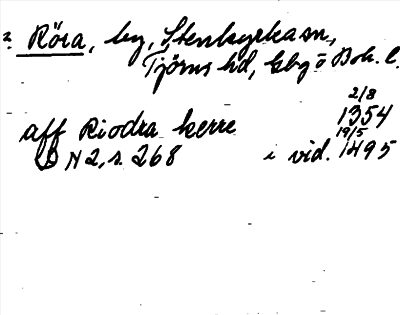 2. Röra, by, Stenkyrka sn,
Tjörns hd, Gbg o Boh. l.
2/8
aff Riodra kerre 1354
19/5
DN 2, s. 268 i vid. 1495